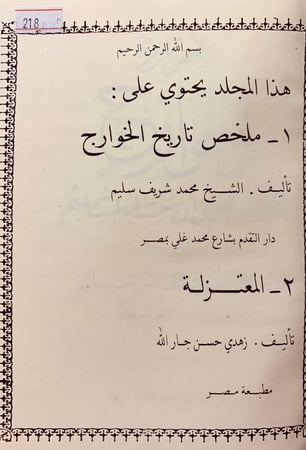 218
بسم الله الرحمن الرحيم
هذا المجلد يحتوي على :
١ـ ملخص تاريخ الخوارج
تأليف . الشيخ محمد شريف سليم
دار التقدم بشارع محمد علي بمصر
٢ـ المعتزلة
تأليف . زهدي حسن جار الله
مطبعة مصر